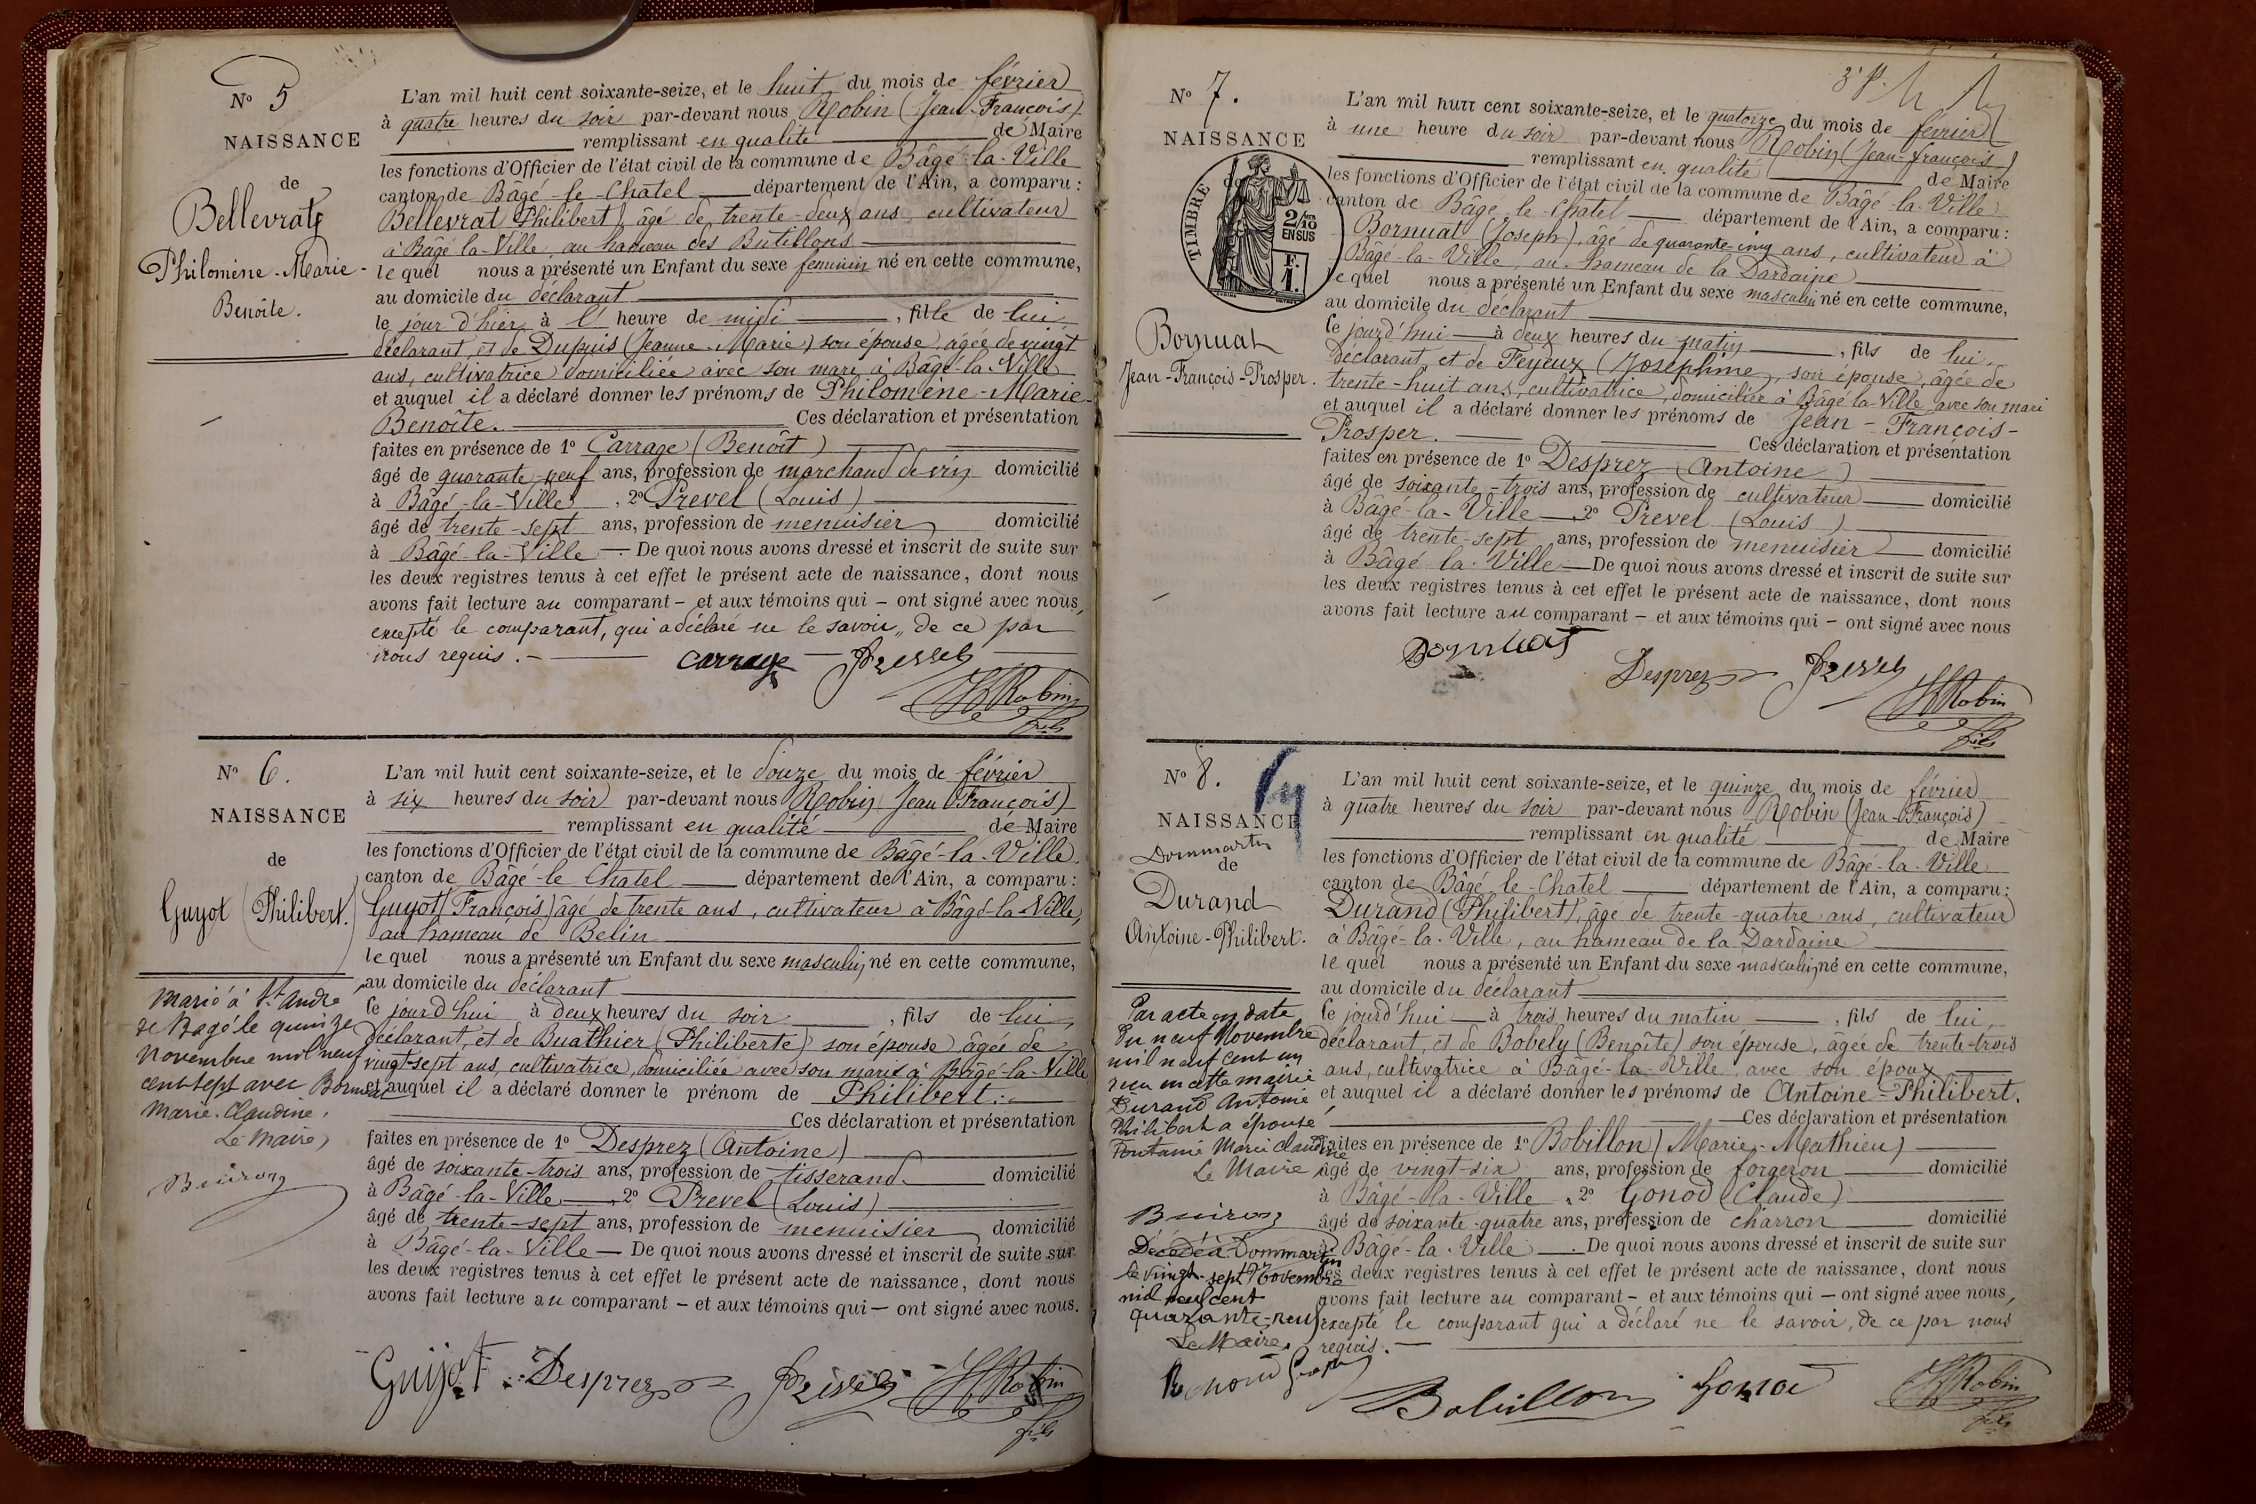 N° 5
NAISSANCE
de
Bellevrat
Philomène-Marie-
Benoîte.
L'an mil huit cent soixante-seize, et le huit du mois de février
à quatre heures du soir par-devant nous Robin (Jean-François)
remplissant en qualité de Maire
les fonctions d'Officier de l'état civil de la commune de Bâgé-la-Ville
canton de Bâgé-le-Chatel département de l'Ain, a comparu :
Bellevrat (Philibert) âgé de trente-deux ans, cultivateur
à Bâgé-la-Ville, au hameau des Butillons
lequel nous a présenté un Enfant du sexe féminin né en cette commune,
au domicile du déclarant
le jour d'hier à l' heure de midi , fille de lui
déclarant, et de Dupuis (Jeanne-Marie) son épouse, âgée de vingt
ans, cultivatrice domiciliée avec son mari à Bâgé-la-Ville
et auquel il a déclaré donner les prénoms de Philomène-Marie-
Benoîte. Ces déclaration et présentation
faites en présence de 1° Carrage (Benoît)
âgé de quarante-neuf ans, profession de marchand de vin domicilié
à Bâgé-la-Ville , 2° Prevel (Louis)
âgé de trente-sept ans, profession de menuisier domicilié
à Bâgé-la-Ville — De quoi nous avons dressé et inscrit de suite sur
les deux registres tenus à cet effet le présent acte de naissance, dont nous
avons fait lecture au comparant – et aux témoins qui – ont signé avec nous,
excepté le comparant, qui a déclaré ne le savoir, de ce par
nous requis. —
Carrage Prevel
Robin
fils
N° 6.
NAISSANCE
de
Guyot (Philibert.)
L'an mil huit cent soixante-seize, et le douze du mois de février
à six heures du soir par-devant nous Robin (Jean-François)
remplissant en qualité de Maire
les fonctions d'Officier de l'état civil de la commune de Bâgé-la-Ville
canton de Bâgé-le-Chatel département de l'Ain, a comparu :
Guyot (François) âgé de trente ans, cultivateur à Bâgé-la-Ville,
au hameau de Belin
lequel nous a présenté un Enfant du sexe masculin né en cette commune,
au domicile du déclarant
le jourd'hui à deux heures du soir , fils de lui,
déclarant, et de Buathier (Philiberte) son épouse âgée de
vingt-sept ans, cultivatrice, domiciliée avec son mari à Bâgé-la-Ville
et auquel il a déclaré donner le prénom de Philibert.
Ces déclaration et présentation
faites en présence de 1° Desprez (Antoine)
âgé de soixante-trois ans, profession de tisserand domicilié
à Bâgé-la-Ville , 2° Prevel (Louis)
âgé de trente-sept ans, profession de menuisier domicilié
à Bâgé-la-Ville — De quoi nous avons dressé et inscrit de suite sur
les deux registres tenus à cet effet le présent acte de naissance, dont nous
avons fait lecture au comparant – et aux témoins qui – ont signé avec nous.
Guyot Desprez Prevel Robin
fils
Marié à St André
de Bagé le quinze
novembre mil neuf
cent sept avec Bornuat
Marie-Claudine.
Le Maire,
Buiron
N° 7.
NAISSANCE
de
TIMBRE
2/10
EN SUS
F.
1.
Bornuat
Jean-François-Prosper.
L'an mil huit cent soixante-seize, et le quatorze du mois de février
à une heure du soir par-devant nous Robin (Jean-François)
remplissant en qualité de Maire
les fonctions d'Officier de l'état civil de la commune de Bâgé-la-Ville
canton de Bâgé-le-Chatel département de l'Ain, a comparu :
Bornuat (Joseph), âgé de quarante-cinq ans, cultivateur à
Bâgé-la-Ville, au hameau de la Dardaine
lequel nous a présenté un Enfant du sexe masculin né en cette commune,
au domicile du déclarant
le jourd'hui à deux heures du matin , fils de lui,
déclarant, et de Feyeux (Joséphine), son épouse, âgée de
trente-huit ans, cultivatrice, domiciliée à Bâgé-la-Ville avec son mari
et auquel il a déclaré donner les prénoms de Jean-François-
Prosper. Ces déclaration et présentation
faites en présence de 1° Desprez (Antoine)
âgé de soixante-trois ans, profession de cultivateur domicilié
à Bâgé-la-Ville , 2° Prevel (Louis)
âgé de trente-sept ans, profession de menuisier domicilié
à Bâgé-la-Ville — De quoi nous avons dressé et inscrit de suite sur
les deux registres tenus à cet effet le présent acte de naissance, dont nous
avons fait lecture au comparant – et aux témoins qui – ont signé avec nous
Bornuat
Desprez Prevel
Robin
fils
N° 8.
NAISSANCE
Dommartin
de
Durand
Antoine-Philibert.
L'an mil huit cent soixante-seize, et le quinze du mois de février
à quatre heures du soir par-devant nous Robin (Jean-François)
remplissant en qualité de Maire
les fonctions d'Officier de l'état civil de la commune de Bâgé-la-Ville
canton de Bâgé-le-Chatel département de l'Ain, a comparu :
Durand (Philibert), âgé de trente-quatre ans, cultivateur
à Bâgé-la-Ville, au hameau de la Dardaine
lequel nous a présenté un Enfant du sexe masculin né en cette commune,
au domicile du déclarant
le jourd'hui à trois heures du matin , fils de lui,
déclarant, et de Bobely (Benoîte) son épouse, âgée de trente-trois
ans, cultivatrice à Bâgé-la-Ville avec son époux
et auquel il a déclaré donner les prénoms de Antoine-Philibert.
Ces déclaration et présentation
faites en présence de 1° Bobillon (Marie-Mathieu)
âgé de vingt-six ans, profession de forgeron domicilié
à Bâgé-la-Ville , 2° Gonod (Claude)
âgé de soixante-quatre ans, profession de charron domicilié
à Bâgé-la-Ville — De quoi nous avons dressé et inscrit de suite sur
les deux registres tenus à cet effet le présent acte de naissance, dont nous
avons fait lecture au comparant – et aux témoins qui – ont signé avec nous,
excepté le comparant qui a déclaré ne le savoir, de ce par nous
requis. —
Bobillon Gonod Robin
fils
Par acte en date
du neuf Novembre
mil neuf cent un
reçu en cette mairie
Durand Antoine
Philibert a épousé
Fontaine Marie Claudine
Le Maire
Buiron
Décédé à Dommartin
le vingt-sept Novembre
mil neuf cent
quarante-neuf
Le Maire,